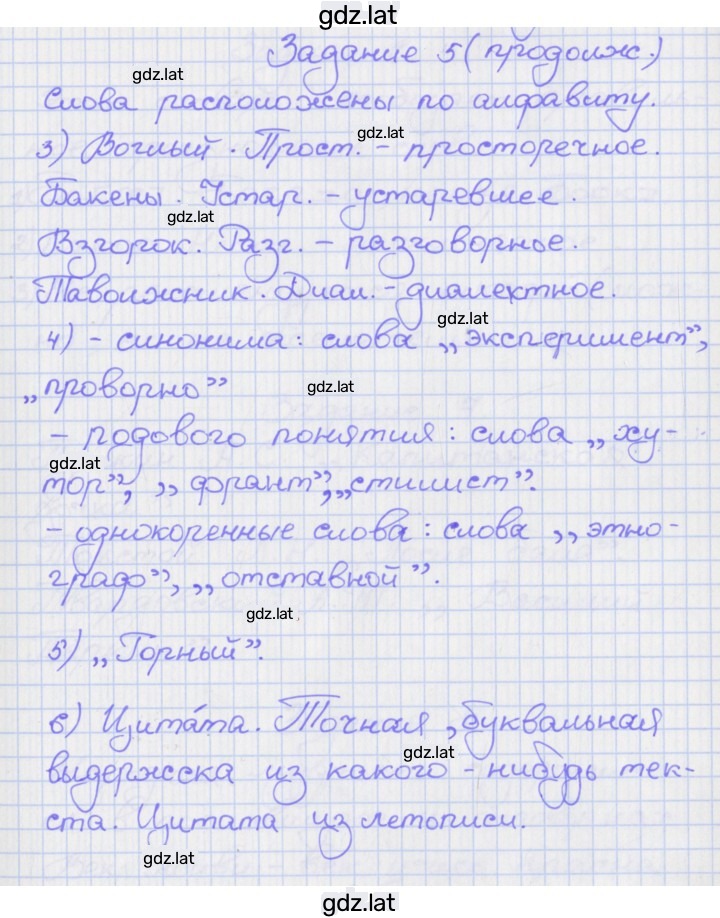 gdz.lat
Задание 5 (продолж.)
gdz.lat
Слова расположены по алфавиту.
gdz.lat
3) Воглый. Прост. - просторечное.
Бакены. Устар. - устаревшее.
gdz.lat
Взгорок. Разг. - разговорное.
Таволжник. Диал. - диалектное.
gdz.lat
4) - синонима: слова „эксперимент”,
„проворно”
gdz.lat
- родового понятия: слова „ху-
gdz.lat
тор”, „франт”, „стилист”.
- однокоренные слова: слова „этно-
граф”, „отставной”.
gdz.lat
5) „Горный”.
6) Цита́та. Точная, буквальная
gdz.lat
выдержка из какого-нибудь тек-
ста. Цитата из летописи.
gdz.lat
gdz.lat